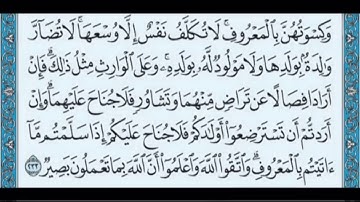 وَكِسْوَتُهُنَّ بِالْمَعْرُوفِ ۚ لَا تُكَلَّفُ نَفْسٌ إِلَّا وُسْعَهَا ۚ لَا تُضَارَّ
وَالِدَةٌ بِوَلَدِهَا وَلَا مَوْلُودٌ لَّهُ بِوَلَدِهِ ۚ وَعَلَى الْوَارِثِ مِثْلُ ذَٰلِكَ ۗ فَإِنْ
أَرَادَا فِصَالًا عَن تَرَاضٍ مِّنْهُمَا وَتَشَاوُرٍ فَلَا جُنَاحَ عَلَيْهِمَا ۗ وَإِنْ
أَرَدتُّمْ أَن تَسْتَرْضِعُوا أَوْلَادَكُمْ فَلَا جُنَاحَ عَلَيْكُمْ إِذَا سَلَّمْتُم مَّا
ءَاتَيْتُم بِالْمَعْرُوفِ ۗ وَاتَّقُوا اللَّهَ وَاعْلَمُوا أَنَّ اللَّهَ بِمَا تَعْمَلُونَ بَصِيرٌ ٢٣٣